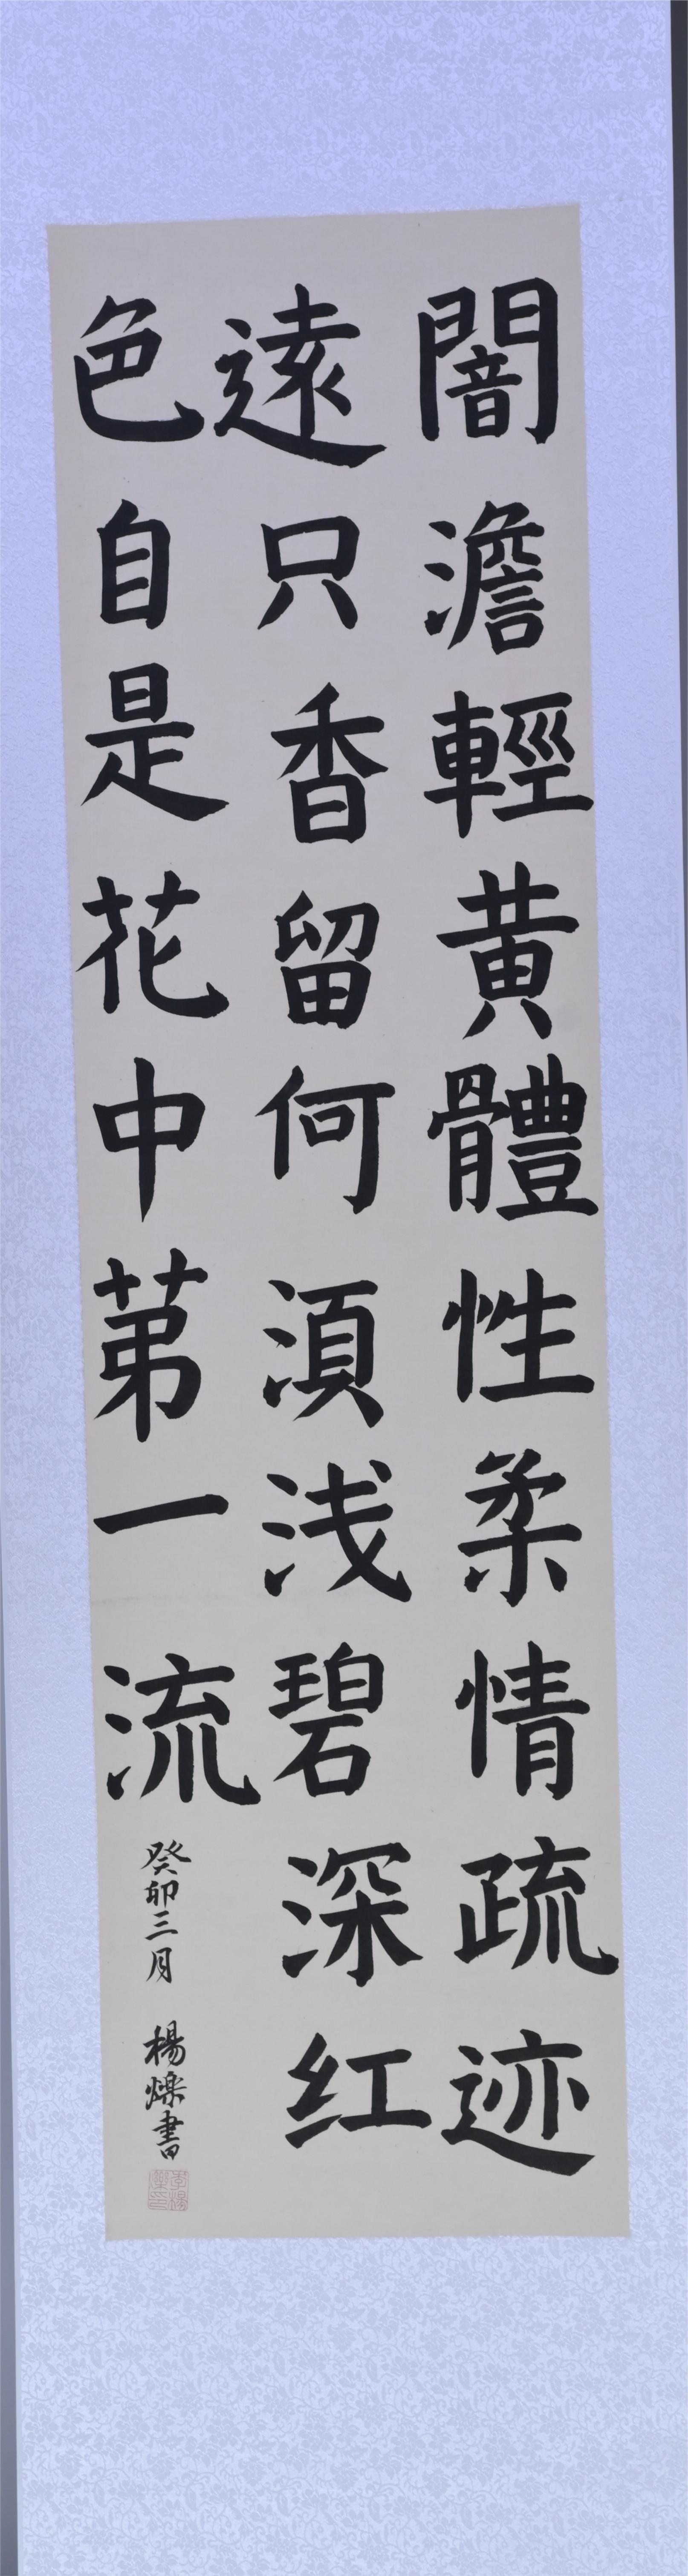 闇澹輕黃體性柔情疏迹
遠只香留何湏浅碧深红
色自是花中苐一流
癸卯三月 楊爍書